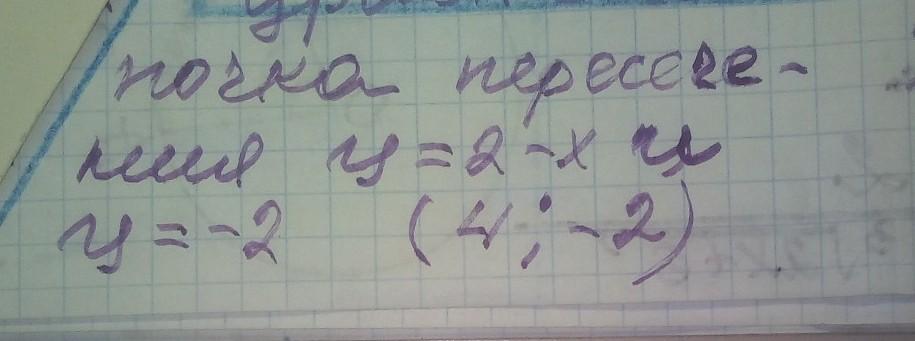 точка пересече-
ния y = 2 - x и
y = -2 (4; -2)